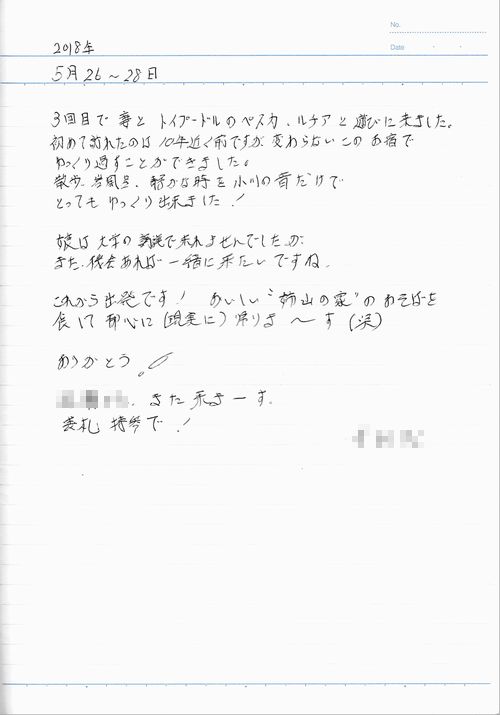 No.
Date
2018年
5月26～28日
3回目で 妻と トイプードルのペスカ、ルチアと遊びに来ました。
初めて訪れたのは10年近く前ですが、変わらないこのお宿で
ゆっくり過すことができました。
散歩、お風呂、静かな時を小川の音だけで
とっても ゆっくり出来ました！
娘は大学の で来れませんでしたが
また、機会あれば 一緒に来たいですね。
これから出発です！ おいしい“ 山の家”のおそばを
食して都心に（現実に）帰りま～す（涙）
ありがとう！
また来まーす。
表札 持参で！